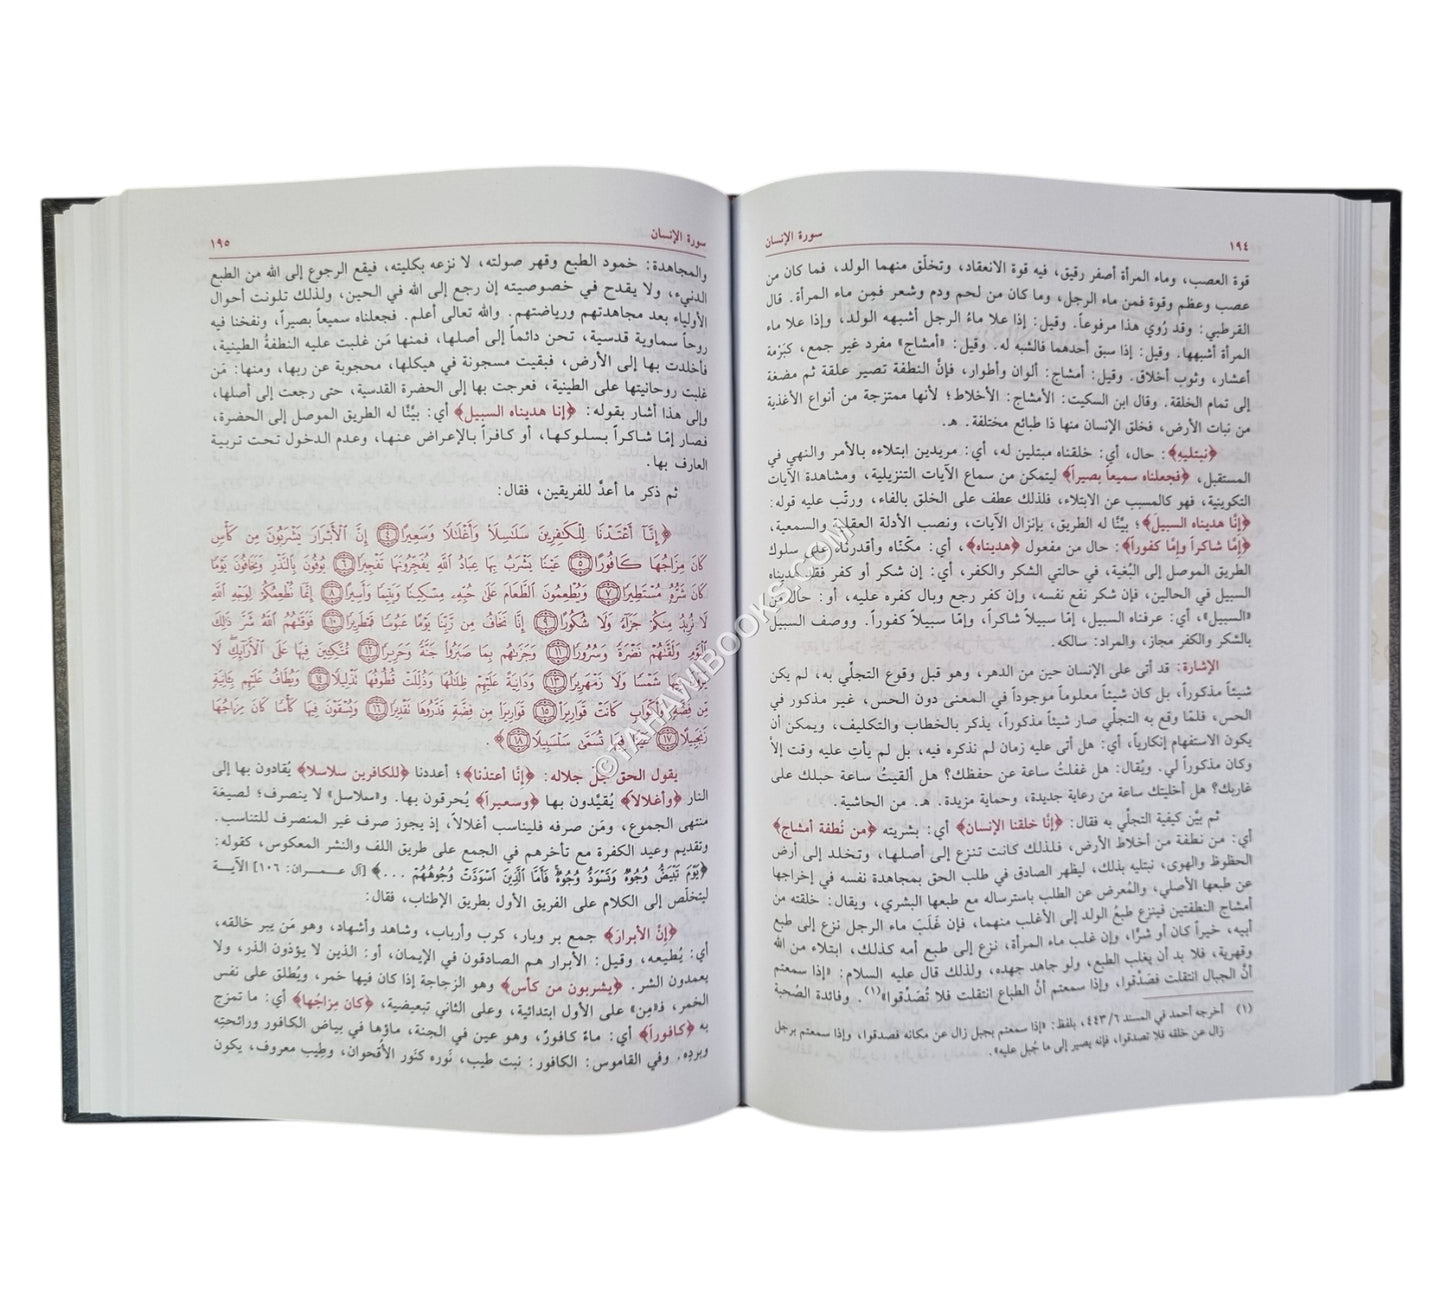 ١٩٤ سورة الإنسان
قوة العصب، وماء المرأة أصفر رقيق، فيه قوة الانعقاد، وتخلّق منهما الولد، فما كان من
عصب وعظم وقوة فمن ماء الرجل، وما كان من لحم ودم وشعر فمِن ماء المرأة. قال
القرطبي: وقد رُوي هذا مرفوعاً. وقيل: إذا علا ماءُ الرجل أشبهه الولد، وإذا علا ماء
المرأة أشبهها. وقيل: إذا سبق أحدهما فالشبه له. وقيل: «أمشاج» مفرد غير جمع، كبَرْمة
أعشار، وثوب أخلاق. وقيل: أمشاج: ألوان وأطوار، فإنَّ النطفة تصير علقة ثم مضغة
إلى تمام الخلقة. وقال ابن السكيت: الأمشاج: الأخلاط؛ لأنها ممتزجة من أنواع الأغذية
من نبات الأرض، فخلق الإنسان منها ذا طبائع مختلفة. هـ.
﴿نبتليهِ﴾: حال، أي: خلقناه مبتلين له، أي: مريدين ابتلاءه بالأمر والنهي في
المستقبل، ﴿فجعلناه سميعاً بصيراً﴾ ليتمكن من سماع الآيات التنزيلية، ومشاهدة الآيات
التكوينية، فهو كالمسبب عن الابتلاء، فلذلك عطف على الخلق بالفاء، ورتّب عليه قوله:
﴿إنَّا هديناه السبيل﴾؛ بيَّنَّا له الطريق، بإنزال الآيات، ونصب الأدلة العقلية والسمعية،
﴿إمَّا شاكراً وإمَّا كفوراً﴾: حال من مفعول ﴿هديناه﴾، أي: مكّنّاه وأقدرناه على سلوك
الطريق الموصل إلى البُغية، في حالتي الشكر والكفر، أي: إن شكر أو كفر فقد هديناه
السبيل في الحالين، فإن شكر نفع نفسه، وإن كفر رجع وبال كفره عليه، أو: حال من
«السبيل»، أي: عرفناه السبيل، إمَّا سبيلاً شاكراً، وإمَّا سبيلاً كفوراً. ووصف السبيل
بالشكر والكفر مجاز، والمراد: سالكه.
الإشارة: قد أتى على الإنسان حين من الدهر، وهو قبل وقوع التجلّي به، لم يكن
شيئاً مذكوراً، بل كان شيئاً معلوماً موجوداً في المعنى دون الحس، غير مذكور في
الحس، فلمّا وقع به التجلّي صار شيئاً مذكوراً، يذكر بالخطاب والتكليف، ويمكن أن
يكون الاستفهام إنكارياً، أي: هل أتى عليه زمان لم نذكره فيه، بل لم يأتِ عليه وقت إلاَّ
وكان مذكوراً لي. ويُقال: هل غفلتُ ساعة عن حفظك؟ هل ألقيتُ ساعة حبلك على
غاربك؟ هل أخليتك ساعة من رعاية جديدة، وحماية مزيدة. هـ. من الحاشية.
ثم بيّن كيفية التجلّي به فقال: ﴿إنَّا خلقنا الإنسان﴾ أي: بشريته ﴿من نُطفة أمشاج﴾
أي: من نطفة من أخلاط الأرض، فلذلك كانت تنزع إلى أصلها، وتخلد إلى أرض
الحظوظ والهوى، نبتليه بذلك، ليظهر الصادق في طلب الحق بمجاهدة نفسه في إخراجها
عن طبعها الأصلي، والمُعرض عن الطلب باسترساله مع طبعها البشري، ويقال: خلقته من
أمشاج النطفتين فينزع طبعُ الولد إلى الأغلب منهما، فإن غَلَبَ ماء الرجل نزع إلى طبع
أبيه، خيراً كان أو شرًّا، وإن غلب ماء المرأة، نزع إلى طبع أمه كذلك، ابتلاء من الله
وقهرية، فلا بد أن يغلب الطبع، ولو جاهد جهده، ولذلك قال عليه السلام: «إذا سمعتم
أنَّ الجبال انتقلت فصَدِّقوا، وإذا سمعتم أنَّ الطباع انتقلت فلا تُصَدِّقوا»(١). وفائدة الصُحبة
(١) أخرجه أحمد في المسند ٦/٤٤٣، بلفظ: «إذا سمعتم بجبل زال عن مكانه فصدقوا، وإذا سمعتم برجل
زال عن خلقه فلا تصدقوا، فإنه يصير إلى ما جُبل عليه».
سورة الإنسان ١٩٥
والمجاهدة: خمود الطبع وقهر صولته، لا نزعه بكليته، فيقع الرجوع إلى الله من الطبع
الدنيء، ولا يقدح في خصوصيته إن رجع إلى الله في الحين، ولذلك تلونت أحوال
الأولياء بعد مجاهدتهم ورياضتهم. والله تعالى أعلم. فجعلناه سميعاً بصيراً، ونفخنا فيه
روحاً سماوية قدسية، تحن دائماً إلى أصلها، فمنها مَن غلبت عليه النطفةُ الطينية،
فأخلدت بها إلى الأرض، فبقيت مسجونة في هيكلها، محجوبة عن ربها، ومنها: مَن
غلبت روحانيتها على الطينية، فعرجت بها إلى الحضرة القدسية، حتى رجعت إلى أصلها،
وإلى هذا أشار بقوله: ﴿إنا هديناه السبيل﴾ أي: بيَّنَّا له الطريق الموصل إلى الحضرة،
فصار إمَّا شاكراً بسلوكها، أو كافراً بالإعراض عنها، وعدم الدخول تحت تربية
العارف بها.
ثم ذكر ما أعدَّ للفريقين، فقال:
﴿إِنَّآ أَعْتَدْنَا لِلْكَٰفِرِينَ سَلَٰسِلَا۟ وَأَغْلَٰلًا وَسَعِيرًا ٤ إِنَّ ٱلْأَبْرَارَ يَشْرَبُونَ مِن كَأْسٍ
كَانَ مِزَاجُهَا كَافُورًا ٥ عَيْنًا يَشْرَبُ بِهَا عِبَادُ ٱللَّهِ يُفَجِّرُونَهَا تَفْجِيرًا ٦ يُوفُونَ بِٱلنَّذْرِ وَيَخَافُونَ يَوْمًا
كَانَ شَرُّهُۥ مُسْتَطِيرًا ٧ وَيُطْعِمُونَ ٱلطَّعَامَ عَلَىٰ حُبِّهِۦ مِسْكِينًا وَيَتِيمًا وَأَسِيرًا ٨ إِنَّمَا نُطْعِمُكُمْ لِوَجْهِ ٱللَّهِ
لَا نُرِيدُ مِنكُمْ جَزَآءً وَلَا شُكُورًا ٩ إِنَّا نَخَافُ مِن رَّبِّنَا يَوْمًا عَبُوسًا قَمْطَرِيرًا ١٠ فَوَقَىٰهُمُ ٱللَّهُ شَرَّ ذَٰلِكَ
ٱلْيَوْمِ وَلَقَّىٰهُمْ نَضْرَةً وَسُرُورًا ١١ وَجَزَىٰهُم بِمَا صَبَرُوا۟ جَنَّةً وَحَرِيرًا ١٢ مُّتَّكِـِٔينَ فِيهَا عَلَى ٱلْأَرَآئِكِ لَا
يَرَوْنَ فِيهَا شَمْسًا وَلَا زَمْهَرِيرًا ١٣ وَدَانِيَةً عَلَيْهِمْ ظِلَٰلُهَا وَذُلِّلَتْ قُطُوفُهَا تَذْلِيلًا ١٤ وَيُطَافُ عَلَيْهِم بِـَٔانِيَةٍ
مِّن فِضَّةٍ وَأَكْوَابٍ كَانَتْ قَوَارِيرَا۠ ١٥ قَوَارِيرَا۟ مِن فِضَّةٍ قَدَّرُوهَا تَقْدِيرًا ١٦ وَيُسْقَوْنَ فِيهَا كَأْسًا كَانَ مِزَاجُهَا
زَنجَبِيلًا ١٧ عَيْنًا فِيهَا تُسَمَّىٰ سَلْسَبِيلًا ١٨﴾.
يقول الحق جلّ جلاله: ﴿إنَّا أعتدْنا﴾؛ أعددنا ﴿للكافرين سلاسلا﴾ يُقادون بها إلى
النار ﴿وأغلالاً﴾ يُقيَّدون بها ﴿وسعيراً﴾ يُحرقون بها. و«سلاسل» لا ينصرف؛ لصيغة
منتهى الجموع، ومَن صرفه فليناسب أغلالاً، إذ يجوز صرف غير المنصرف للتناسب.
وتقديم وعيد الكفرة مع تأخرهم في الجمع على طريق اللف والنشر المعكوس، كقوله:
﴿يَوْمَ تَبْيَضُّ وُجُوهٌ وَتَسْوَدُّ وُجُوهٌ فَأَمَّا الَّذِينَ اسْوَدَّتْ وُجُوهُهُمْ ...﴾ [آل عمران: ١٠٦] الآية
ليتخلّص إلى الكلام على الفريق الأول بطريق الإطناب، فقال:
﴿إنَّ الأبرارَ﴾ جمع بر وبار، كرب وأرباب، وشاهد وأشهاد، وهو مَن يبر خالقه،
أي: يُطيعه، وقيل: الأبرار هم الصادقون في الإيمان، أو: الذين لا يؤذون الذر، ولا
يعمدون الشر. ﴿يشربون من كأس﴾ وهو الزجاجة إذا كان فيها خمر، ويُطلق على نفس
الخمر، فـ«مِن» على الأول ابتدائية، وعلى الثاني تبعيضية، ﴿كان مِزاجُها﴾ أي: ما تمزج
به ﴿كافوراً﴾ أي: ماءُ كافورٌ، وهو عين في الجنة، ماؤها في بياض الكافور ورائحته
وبرده. وفي القاموس: الكافور: نبت طيب، نَوره كنَور الأُقحوان، وطِيب معروف، يكون
©TAHAWIBOOKS.COM